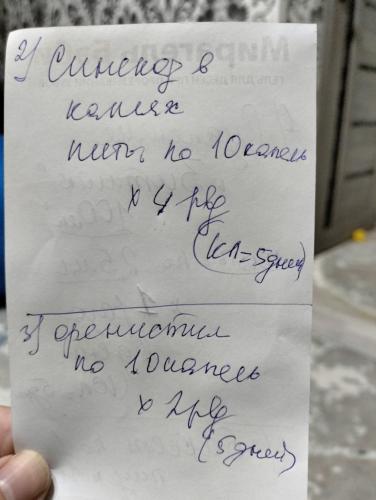 2) Синекод в
каплях
пить по 10 капель
х 4 р/д
(КЛ = 5 дней)
3) фенистил
по 10 капель
х 2 р/д
(5 дней)